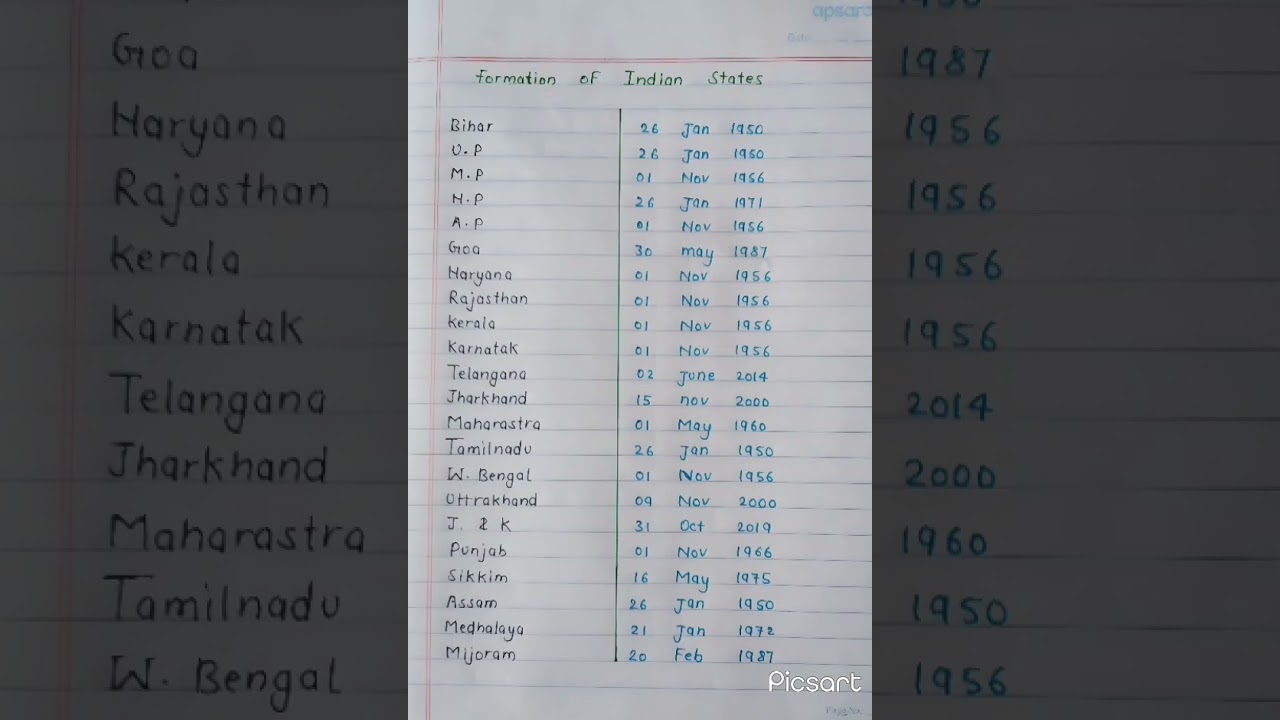 Goa
Haryana
Rajasthan
Kerala
Karnatak
Telangana
Jharkhand
Maharastra
Tamilnadu
W. Bengal
Formation of Indian States
Bihar 26 Jan 1950
U.P 26 Jan 1950
M.P 01 Nov 1956
H.P 26 Jan 1971
A.P 01 Nov 1956
Goa 30 may 1987
Haryana 01 Nov 1956
Rajasthan 01 Nov 1956
Kerala 01 Nov 1956
Karnatak 01 Nov 1956
Telangana 02 June 2014
Jharkhand 15 nov 2000
Maharastra 01 May 1960
Tamilnadu 26 Jan 1950
W. Bengal 01 Nov 1956
Uttrakhand 09 Nov 2000
J. & K 31 Oct 2019
Punjab 01 Nov 1966
Sikkim 16 May 1975
Assam 26 Jan 1950
Medhalaya 21 Jan 1972
Mijoram 20 Feb 1987
Picsart
Page No.
1987
1956
1956
1956
1956
2014
2000
1960
1950
1956